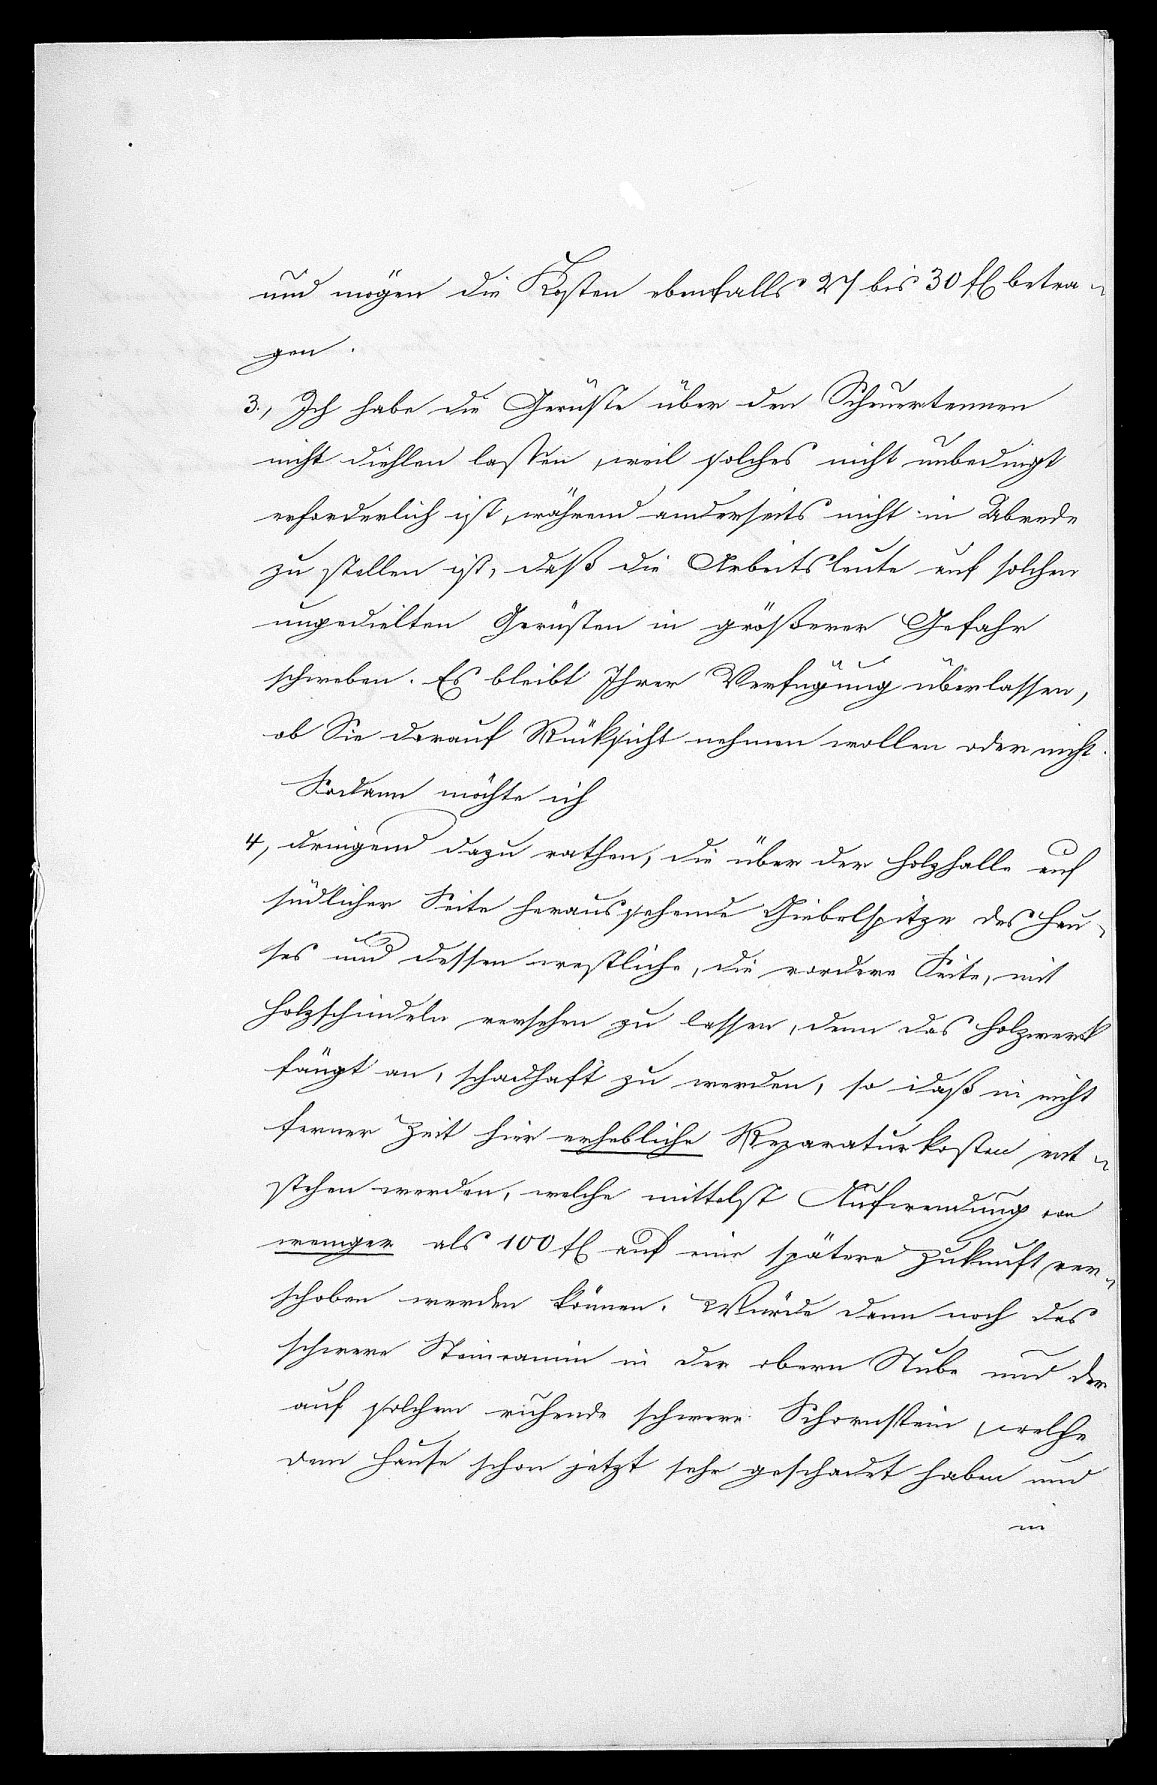 und mögen die Kosten ebenfalls 27 bis 30 fl betra-
gen.
3., Ich habe die Gerüste über den Scheuertennen
nicht diehlen lassen, weil solches nicht unbedingt
erforderlich ist, während anderseits nicht in Abrede
zu stellen ist, daß die Arbeitsleute auf solchen
ungedielten Gerüsten in größerer Gefahr
schweben. Es bleibt Ihrer Verfügung überlassen,
ob Sie darauf Rücksicht nehmen wollen oder nicht.
Sodann möchte ich
4, dringend dazu rathen, die über der Holzhalle auf
südlicher Seite heraussehende Giebelspitze des Hau-
ses und dessen westliche, die vordere Seite, mit
Holzschindeln versehen zu lassen, denn das Holzwerk
fängt an, schadhaft zu werden, so daß in nicht
ferner Zeit hier erhebliche Reparaturkosten ent-
stehen werden, welche mittelst Aufwendung von
weniger als 100 fl auf eine spätere Zukunft ver-
schoben werden können. Würde dann noch das
schwere Steincamin in der obern Stube und der
auf solchem ruhende schwere Schornstein, welche
dem Hause schon jetzt sehr geschadet haben und
in